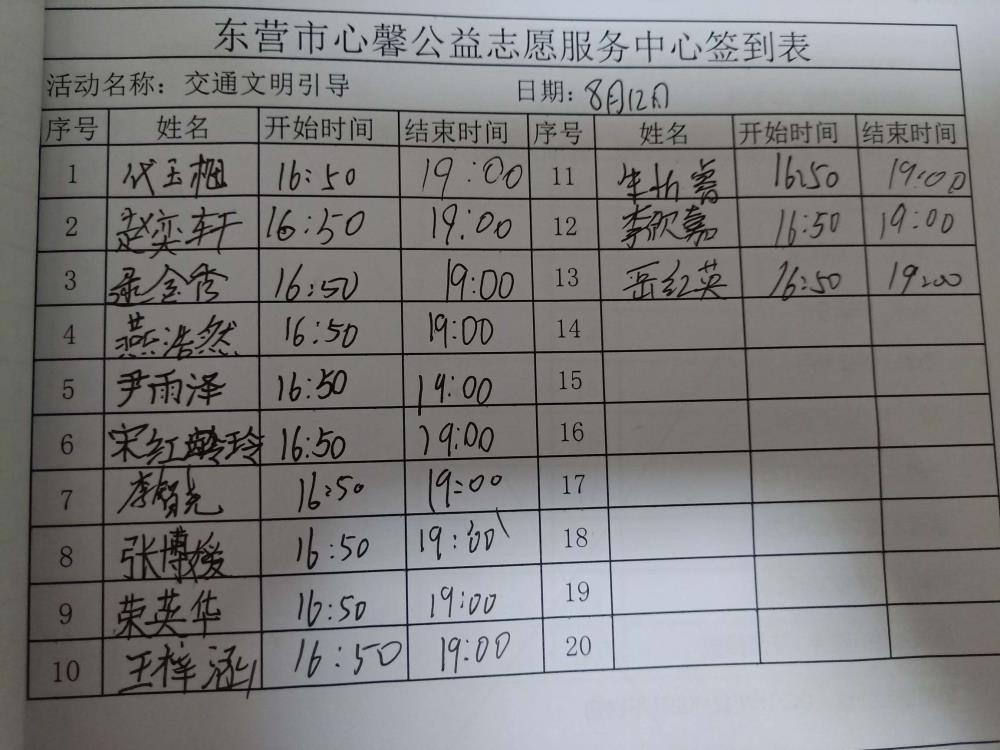 东营市心馨公益志愿服务中心签到表
活动名称：交通文明引导 日期：8月12日
序号 姓名 开始时间 结束时间 序号 姓名 开始时间 结束时间
1 代玉栩 16:50 19:00 11 牛 16:50 19:00
2 赵奕轩 16:50 19:00 12 李欣嘉 16:50 19:00
3 金秀 16:50 19:00 13 岳红英 16:50 19:00
4 燕浩然 16:50 19:00 14
5 尹雨泽 16:50 19:00 15
6 宋红玲 16:50 19:00 16
7 李智尧 16:50 19:00 17
8 张博媛 16:50 19:00 18
9 荣英华 16:50 19:00 19
10 王梓涵 16:50 19:00 20